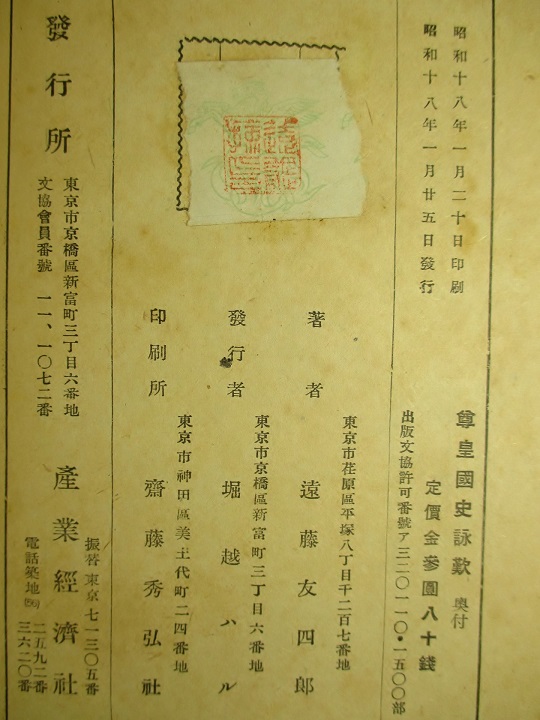 昭和十八年一月二十日印刷
昭和十八年一月廿五日發行
尊皇國史詠歎 奧付
定價金參圓八十錢
出版文協許可番號ア三二〇一一〇・一五〇〇部
東京市荏原區平塚八丁目千二百七番地
著者 遠藤友四郎
東京市京橋區新富町三丁目六番地
發行者 堀越ハル
東京市神田區美土代町二四番地
印刷所 齋藤秀弘社
發行所
東京市京橋區新富町三丁目六番地
文協會員番號 一一、一〇七二番
產業經濟社
振替東京七一三〇五番
電話築地(55) 二五九二番
三六二〇番